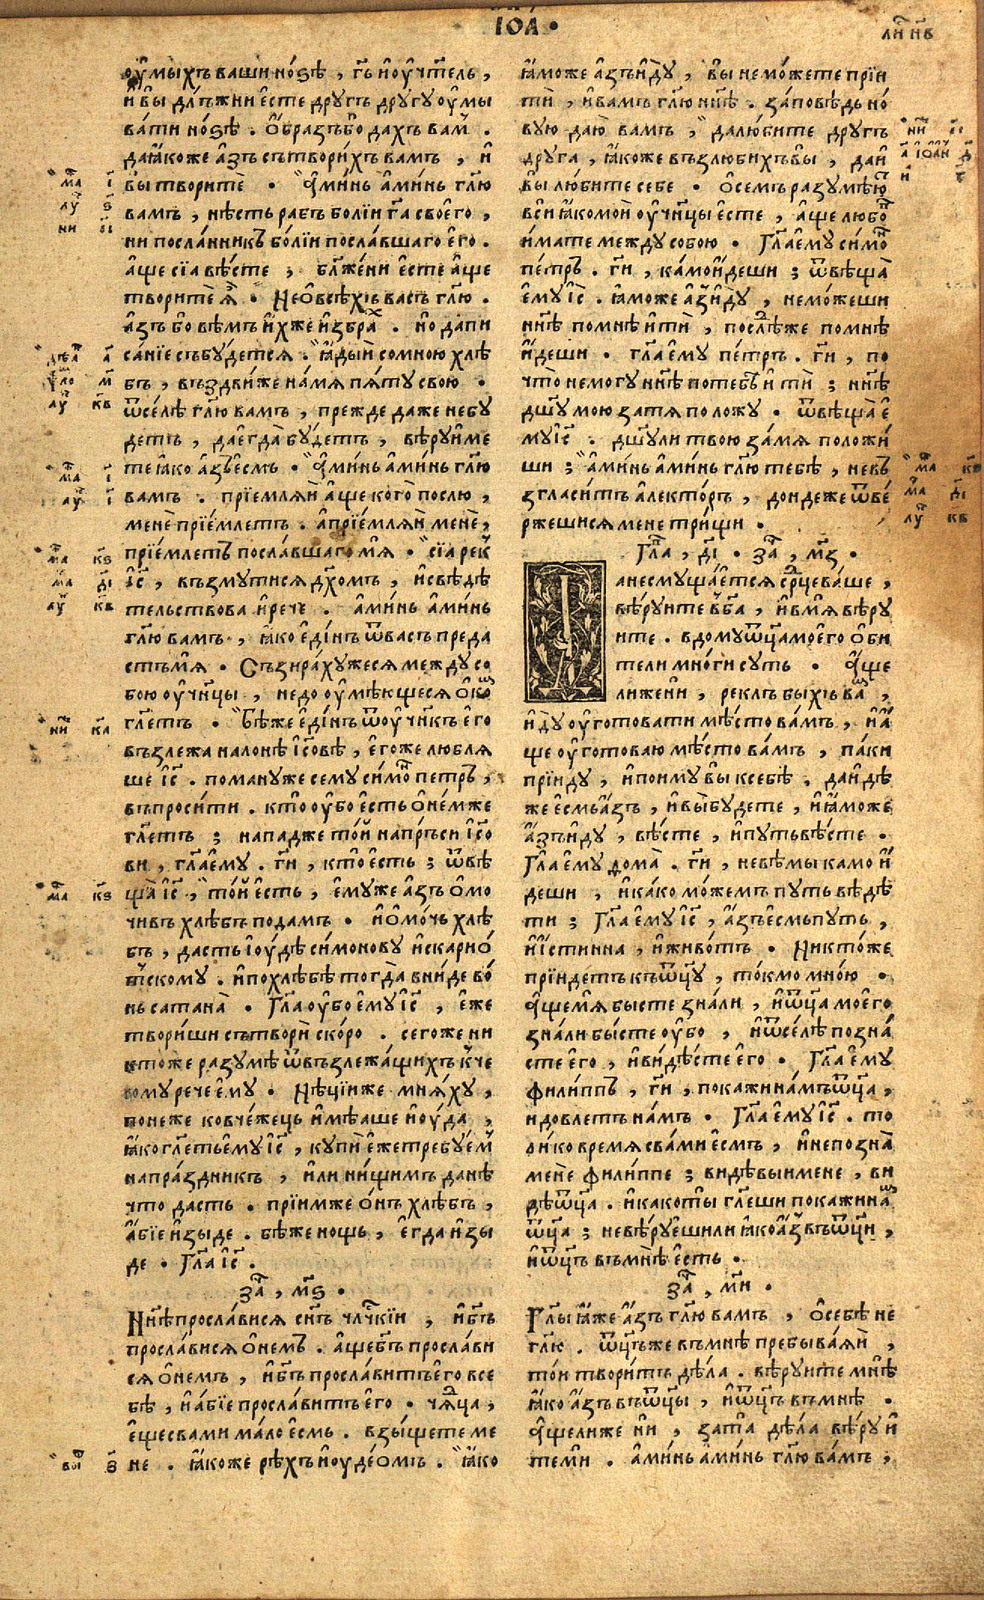 ІѠА҃ •
ли҃ н҃в
оу҆мы́хъ ва́ши но́зѣ , гь҃ и҆ оу҆чт҃ель ,
и҆ вы̀ дл҄ъжни є҆сте дру́гъ другу оу҆мы
ва́ти но́зѣ . О҆́бразъ бо да́хъ вам̾ .
да ꙗ҆́коже а҆́зъ сътвори́хъ вамъ , и҆
вы̀ творитѐ • А҆ми́нь а҆ми́нь гл҃ю
вамъ , нѣ́сть рабъ бо́лїи гд҃а своего ,
ни посла́нникъ бо́лїи посла́вшаго є҆го .
а҆́ще сїа вѣ́сте , бл҃же́ни є҆сте а҆́ще
творитѐ ꙗ҆̀ • Не о҆ всѣ́хъ васъ гл҃ю .
а҆́зъ бо вѣ́мъ и҆́хже и҆збра́х . но да пи
са́нїе събу́дется . ꙗ҆ды́й со мно́ю хлѣ
бъ , въздви́же на́ мя пя́ту свою •
ѿсе́лѣ гл҃ю вамъ , пре́жде да́же небу
детъ , да є҆гда̀ бу́детъ , вѣ́руи҆ме
те ꙗ҆́ко а҆́зъ є҆смъ . А҆ми́нь а҆ми́нь гл҃ю
вамъ . прїе́мляй а҆́ще кого̀ послю ,
менѐ прїе́млетъ . а҆ прїе́мляй менѐ ,
прїе́млетъ посла́вшаго мѧ̀ • сїа рек̾
і҆с҃ , възмути́ся дх҃омъ , и҆ свѣдѣ
тельствова и҆ рече . а҆ми́нь а҆ми́нь
гл҃ю вамъ , ꙗ҆́ко є҆ди́нъ ѿ васъ преда
стъ мѧ̀ • Съзира́хужеся между со
бою оу҆чн҃цы , недоу҆мѣющеся о҆ ко
гл҃етъ • Бѣ́же є҆ди́нъ ѿ оу҆чн҃къ є҆го
възлежа на ло́нѣ і҆с҃овѣ , є҆го́же любля
ше і҆с҃ . поману́же сему симо҆ петръ ,
въпроси́ти . кто̀ оу҆бо є҆сть о҆ не́мже
гл҃етъ ; нападже то́й на пръси і҆с҃о
ви , гл҃а є҆му . гд҃и , кто̀ є҆сть ; ѿвѣ
ща̀ і҆с҃ , то́й є҆сть , є҆му́же а҆́зъ о҆мо
чивъ хлѣ́бъ подамъ • и҆ о҆мо́чь хлѣ
бъ , дастъ і҆оу́дѣ си́монову и҆скарио́
тскому . и҆ по хлѣ́бѣ тогда̀ вни́де во́
нь сатана̀ • Гл҃а оу҆́бо є҆му і҆с҃ , є҆́же
твори́ши сътворѝ ско́ро . сего́же ни
кто́же разумѣ̀ ѿ възлежа́щихъ к̾ че
ому рече є҆му • Нѣ́цїиже мня́ху ,
поне́же ковче́жець и҆мѣ́аше и҆оу́да ,
ꙗ҆́ко гл҃етъ є҆му і҆с҃ , купѝ є҆́же требу́ем̾
на пра́здникъ , и҆ли ни́щимъ да нѣ́
что да́стъ • прїи́мже о҆нъ хлѣ́бъ ,
а҆́бїе и҆зы́де . бѣ́же но́щь , є҆гда̀ и҆зы́
де • Гл҃а і҆с҃ .
за҃ч , м҃ѕ •
Нн҃ѣ просла́вися сн҃ъ чл҃ч҃кїи , и҆ бг҃ъ
просла́вися о҆ не́мъ . а҆́ще бг҃ъ просла́ви
ся о҆ не́мъ , и҆ бг҃ъ просла́витъ є҆го в се
бѣ̀ , и҆ а҆́бїе просла́витъ є҆го • чя́дца ,
є҆ще с ва́ми ма́ло є҆смь . взы́щете ме
не . ꙗ҆́коже рѣ́хъ и҆оу́деомъ . ꙗ҆́ко
ꙗ҆́може а҆́зъ и҆ду̀ , вы̀ не мо́жете прїи
ти̑ , и҆ вамъ гл҃ю нн҃ѣ . за́повѣдь но́
вую даю̀ вамъ , да лю́бите другъ
друга , ꙗ҆́коже възлюби́хъ вы̀ , да и҆
вы̀ лю́бите себе • О҆ семъ разумѣю́т
вси ꙗ҆́ко мои̑ оу҆чн҃цы є҆сте , а҆́ще любо́в
и҆́мате между собою • Гл҃а є҆му симо҆н
петръ . гд҃и , ка́мо и҆́деши ; ѿвѣща̀
є҆му і҆с҃ . ꙗ҆́може а҆́зъ и҆ду̀ , не мо́жеши
нн҃ѣ по мнѣ̀ и҆тѝ , послѣ́дже по мнѣ
и҆́деши • гл҃а є҆му пе́тръ . гд҃и , по
что̀ немогу нн҃ѣ по тебѣ̀ и҆ти ; нн҃ѣ
дш҃у мою̀ за тя положу • ѿвѣща̀ є҆
му і҆с҃ . дш҃у ли твою за́ мя положи́
ши ; а҆ми́нь а҆ми́нь гл҃ю тебѣ , невъ
згласи́тъ а҆ле́кторъ , до́ндеже ѿве́
ржешися мене три́щи •
Гл҃а , д҃і • за҃ч , м҃з •
Да не смуща́ется ср҃це ва́ше ,
вѣ́руите в̾ бг҃а , и҆ в мѧ̀ вѣ́ру
ите . в дому ѿц҃а моего о҆би
тели мно́ги суть • А҆́ще
ли́же ни̑ , реклъ бы́хъ вам ,
и҆ду̀ оу҆гото́вати мѣ́сто ва́мъ , и҆ а҆́
ще оу҆гото́ваю мѣ́сто ва́мъ , па́ки
прїиду , и҆ поиму вы̀ к себѣ , да и҆дѣ
же є҆смь а҆́зъ , и҆ вы̀ бу́дете , и҆ ꙗ҆́може
а҆́зъ и҆ду̀ , вѣ́сте , и҆ путь вѣ́сте •
Гл҃а є҆му домà . гд҃и , не вѣ́мы ка́мо и҆
деши , и҆ ка́ко мо́жемъ путь вѣ́дѣ
ти ; Гл҃а є҆му і҆с҃ , а҆́зъ є҆смь путь ,
и҆ и҆́стинна , и҆ живо́тъ • Никто́же
прїидетъ къ ѿц҃у , то́кмо мно́ю •
А҆́ще мѧ̀ бысте зна́ли , и҆ ѿц҃а мое́го
зна́ли бы́сте оу҆́бо , и҆ ѿсе́лѣ позна́
сте є҆го , и҆ ви́дѣсте є҆го • Гл҃а є҆му
фили́ппъ , гд҃и , покажи на́мъ ѿц҃а ,
и довлетъ на́мъ • Гл҃а є҆му і҆с҃ . то
лико время с ва́ми є҆смъ , и҆ непозна̀
менѐ фили́ппе ; ви́дѣвыи мене , ви
дѣ ѿц҃а . и҆ ка́ко ты̀ гл҃еши покажи нам
ѿц҃а ; не вѣ́руешили ꙗ҆́ко а҆́зъ въ ѿц҃и ,
и҆ ѿц҃ъ въ мнѣ̀ є҆сть •
за҃ч , м҃и •
Гл҃ы ꙗ҆́же а҆́зъ гл҃ю вамъ , о҆ себѣ̀ не
гл҃ю . ѿц҃ъже въ мнѣ̀ пребыва́яй ,
то́и твори́тъ дѣ́ла . вѣ́руите мнѣ̀
ꙗ҆́ко а҆́зъ въ ѿц҃ы , и҆ ѿц҃ъ въ мнѣ •
А҆́щелиже ни̑ , за та̀ дѣ́ла вѣ́руи҆
те ми̑ . а҆ми́нь а҆ми́нь гл҃ю ва́мъ ,